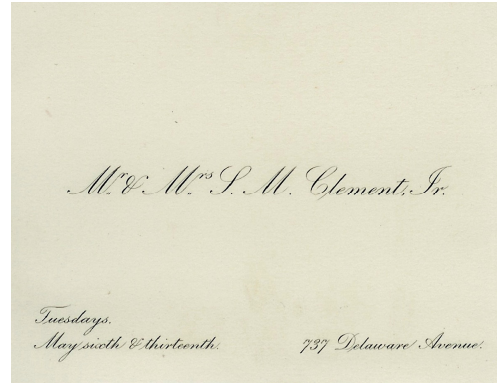 Mr & Mrs S. M. Clement, Jr.
Tuesdays.
May sixth & thirteenth.
737 Delaware Avenue.